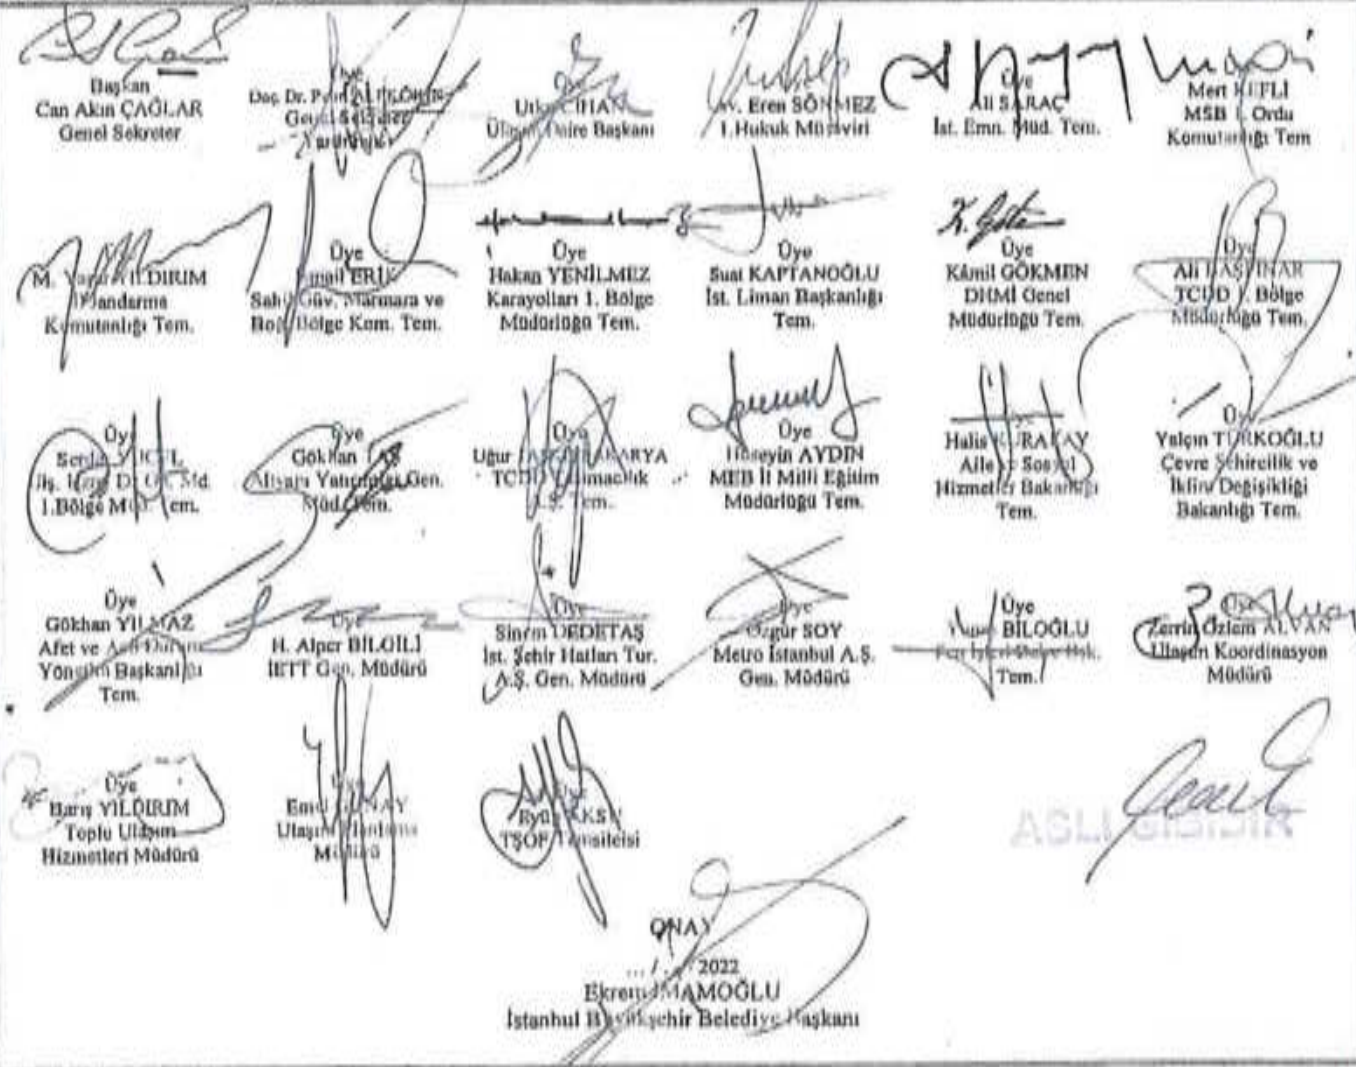 Başkan
Can Akın ÇAĞLAR
Genel Sekreter
Üye
Doç. Dr. Pelin ALPKÖKİN
Genel Sekreter
Üye
Utku CİHAN
Ulaşım Daire Başkanı
Av. Eren SÖNMEZ
1.Hukuk Müşaviri
Üye
Ali SARAÇ
İst. Emn. Müd. Tem.
Mert KEFLİ
MSB 1. Ordu
Komutanlığı Tem
M. YILDIRIM
Jandarma
Komutanlığı Tem.
Üye
İsmail ERİK
Sahil Güv. Marmara ve
Boğ. Bölge Kom. Tem.
Üye
Hakan YENİLMEZ
Karayolları 1. Bölge
Müdürlüğü Tem.
Üye
Suat KAPTANOĞLU
İst. Liman Başkanlığı
Tem.
Üye
Kâmil GÖKMEN
DHMİ Genel
Müdürlüğü Tem.
Üye
Ali BAŞPINAR
TCDD 1. Bölge
Müdürlüğü Tem.
Üye
1.Bölge Müd. Tem.
Üye
Gökhan TAŞ
Altyapı Yatırımları Gen.
Müd. Tem.
Üye
Uğur
TCDD Taşımacılık
A.Ş. Tem.
Üye
Hüseyin AYDIN
MEB İl Milli Eğitim
Müdürlüğü Tem.
Halis KURALAY
Aile ve Sosyal
Hizmetler Bakanlığı
Tem.
Üye
Yalçın TÜRKOĞLU
Çevre Şehircilik ve
İklim Değişikliği
Bakanlığı Tem.
Üye
Gökhan YILMAZ
Afet ve Acil Durum
Yönetim Başkanlığı
Tem.
Üye
H. Alper BİLGİLİ
İETT Gen. Müdürü
Üye
Sinem DEDETAŞ
İst. Şehir Hatları Tur.
A.Ş. Gen. Müdürü
Üye
Özgür SOY
Metro İstanbul A.Ş.
Gen. Müdürü
Üye
BİLOĞLU
Tem.
Üye
Zerrin Özlem ALVAN
Ulaşım Koordinasyon
Müdürü
Üye
Barış YILDIRIM
Toplu Ulaşım
Hizmetleri Müdürü
Üye
GÜNAY
Ulaşım Planlama
Müdürü
Üye
Eyüp AKSU
TŞOF Temsilcisi
ASLI GİBİDİR
ONAY
2022
Ekrem İMAMOĞLU
İstanbul Büyükşehir Belediye Başkanı